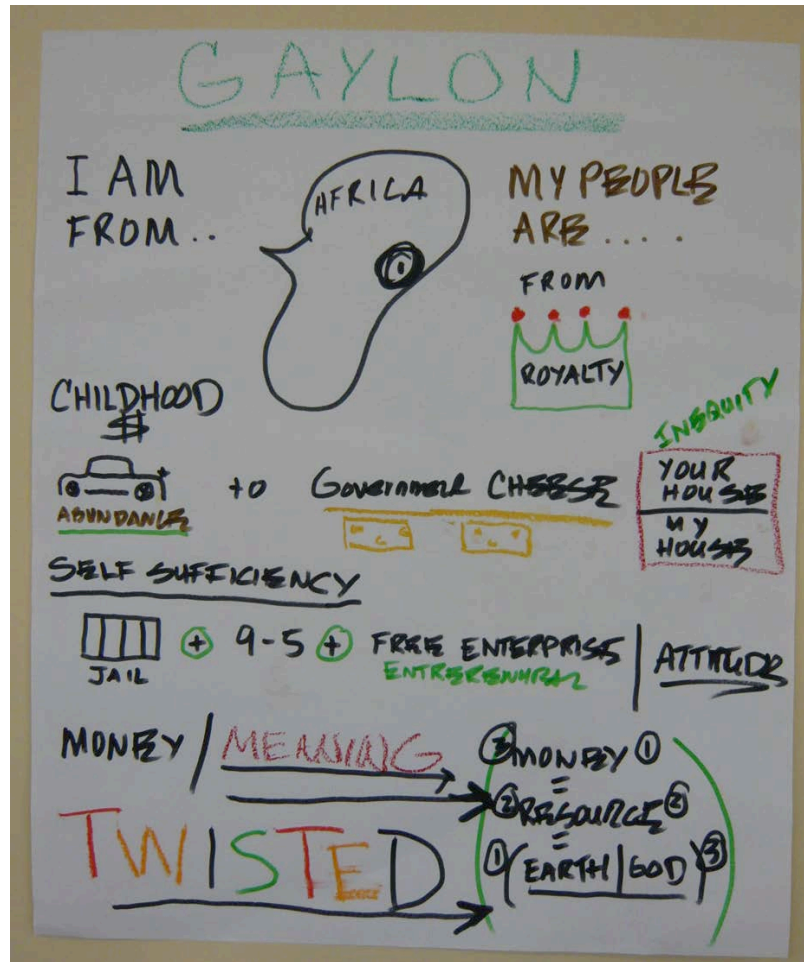 GAYLON
I AM
FROM..
AFRICA
MY PEOPLE
ARE....
FROM
ROYALTY
CHILDHOOD
$
ABUNDANCE
to
Government CHEESE
INEQUITY
YOUR
HOUSE
MY
HOUSE
SELF SUFFICIENCY
JAIL
+ 9-5 + FREE ENTERPRISE
ATTITUDE
MONEY / MEANING
③ MONEY ①
=
② RESOURCE ②
=
① (EARTH | GOD) ③
TWISTED